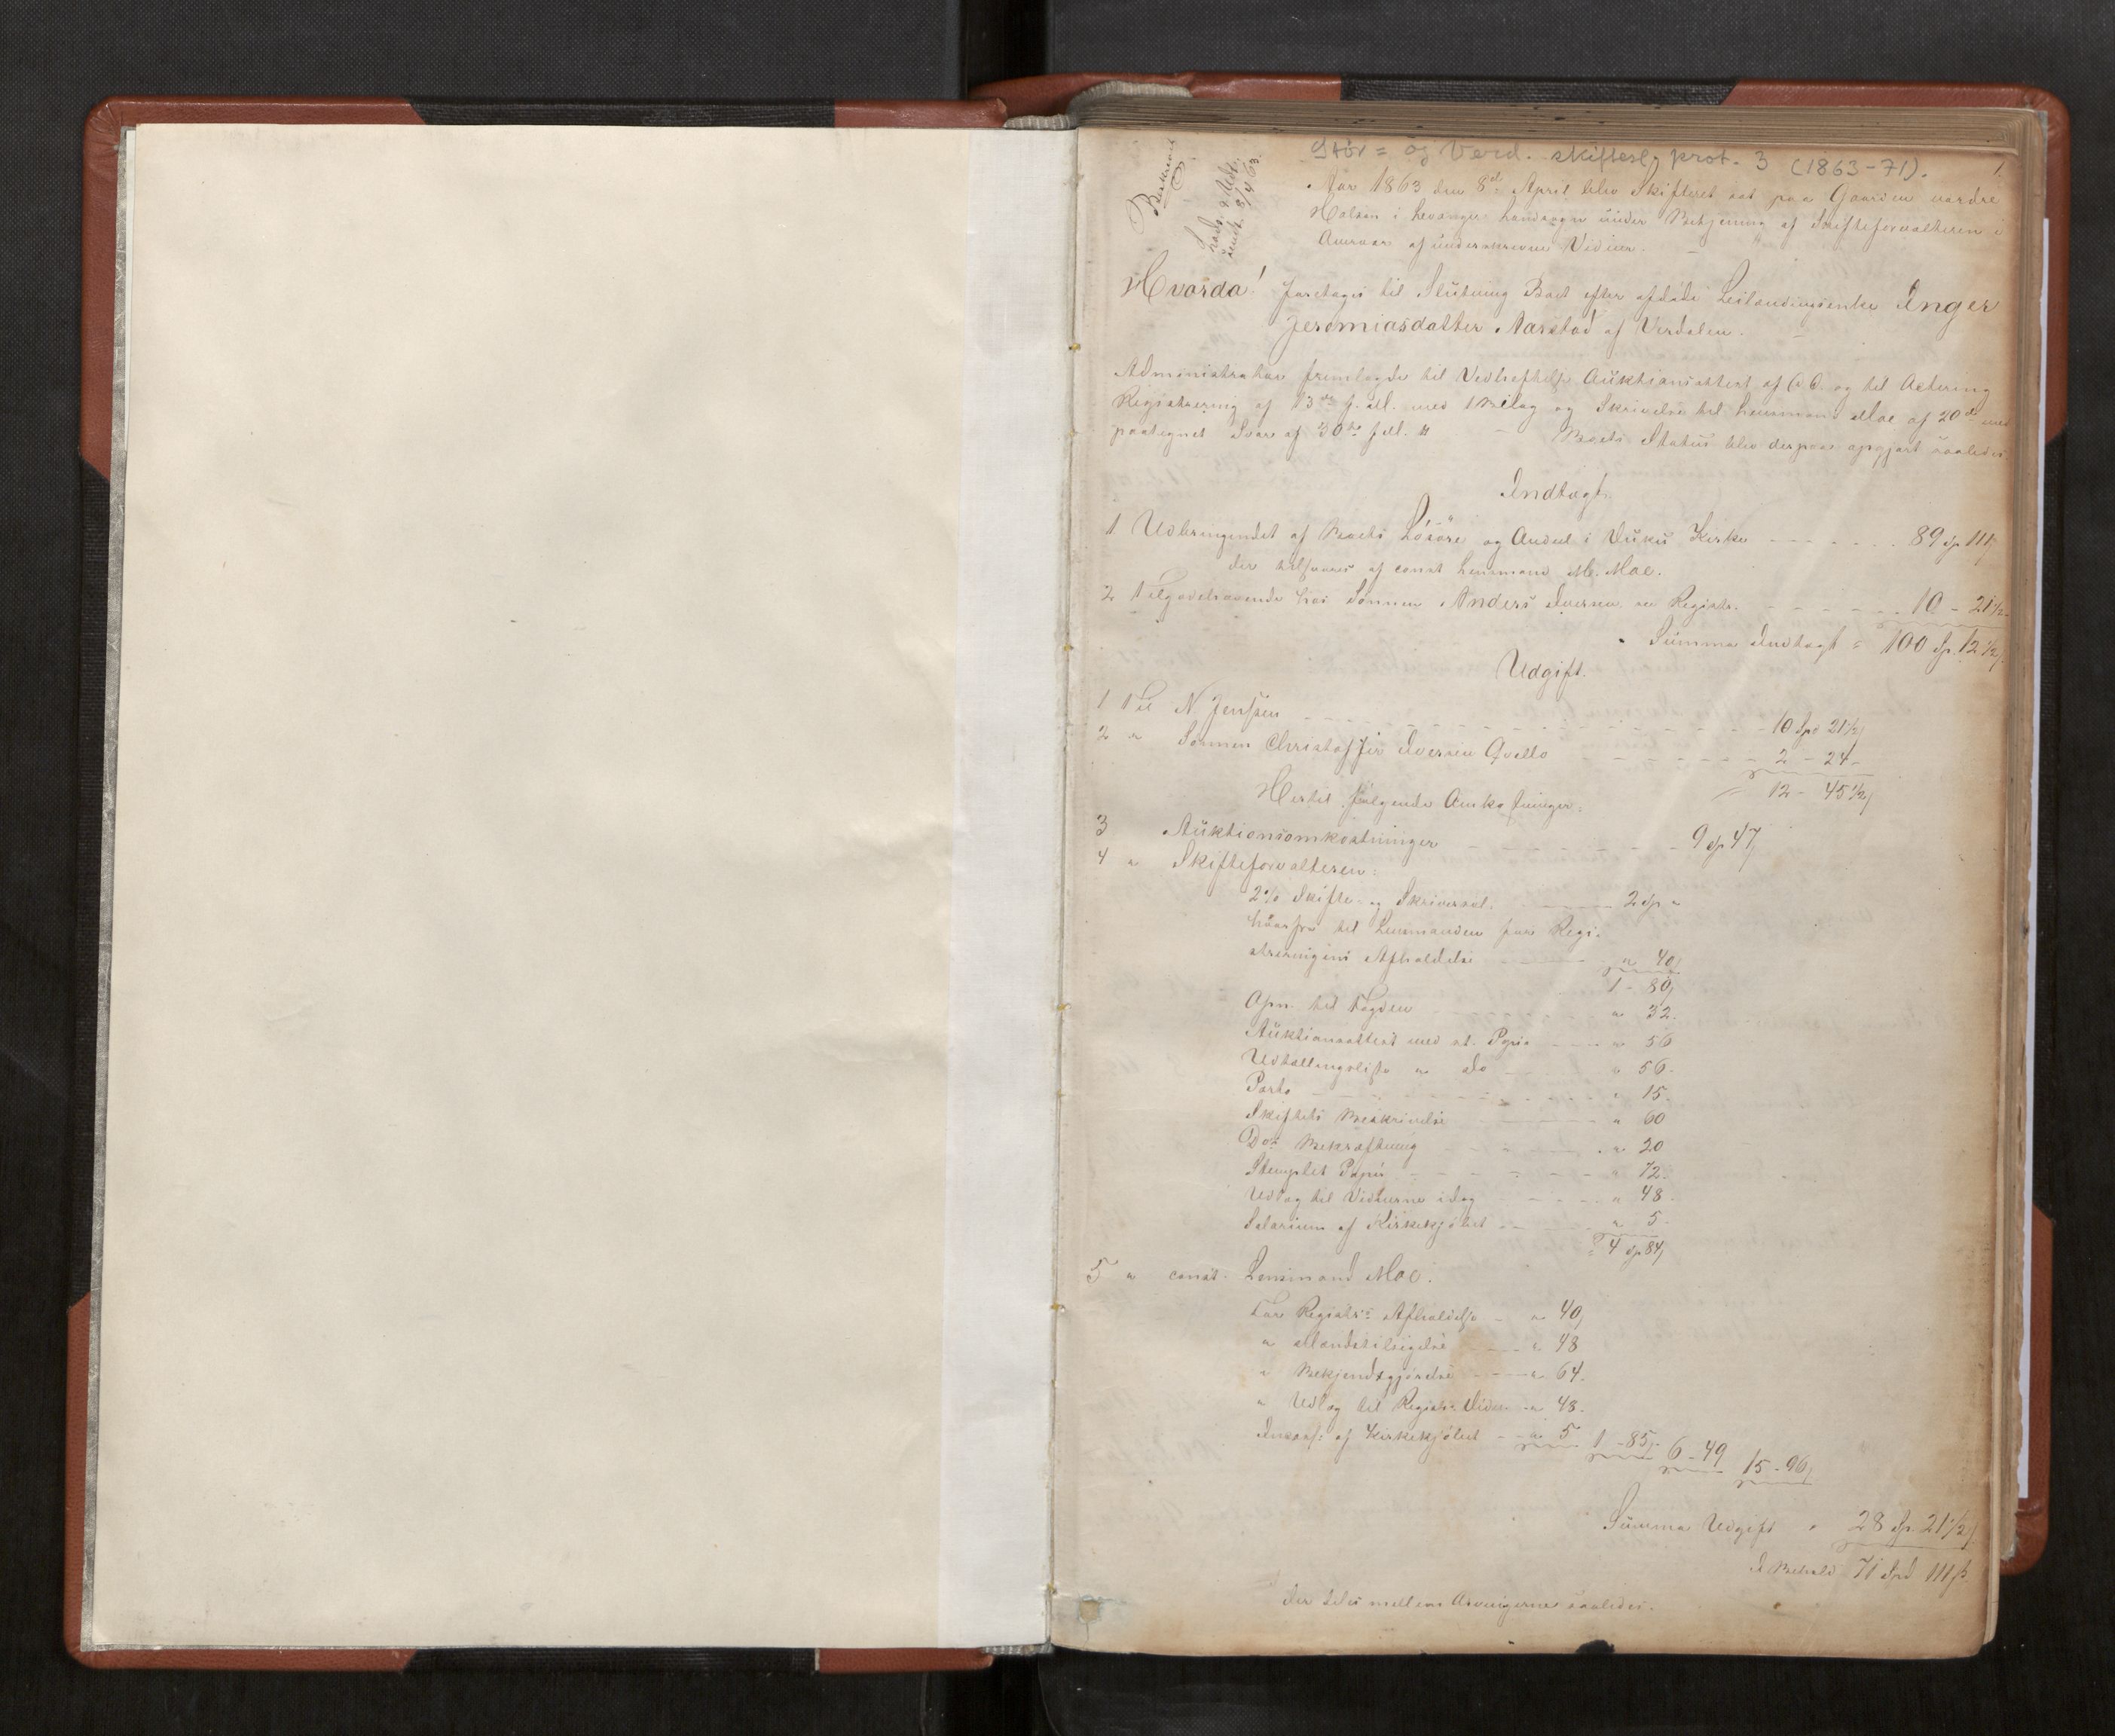 Stør = og Verd. skiftesl. prot. 3 (1863-71).
1.
Beskrevet
8/4 63.
Aar 1863 den 8de April blev Skifteret sat paa Gaarden nordre
Halsan i Levanger Landsogn under Betjening af Skifteforvalteren i
Overvær af underskrevne Vidner.
Hvorda! foretoges til Slutning Boet efter afdøde Leilændingsenke Inger
Jeremiasdatter Aarstad af Verdalen.
Administrator fremlagde til Vedheftelse Auktionsattest af og til Actering
Registrering af 13de f. M. med 1 Bilag og Skrivelse til Lensmand Moe af 20de med
paategnet Svar af 30te f. M. Boets Status blev derpaa opgjort saaledes
Indtægt.
1 Udbringendet af Boets Løsøre og Andel i Vuku Kirke 89 Sp 111
der tilsvares af const Lensmand M. Moe.
2 Tilgodehavende hos Sønnen Anders Iversen se Registr. 10 - 21½
Summa Indtægt = 100 Sp. 12½
Udgift.
1 Til N. Jenssen 10 Spd 21½
2 " Sønnen Christoffer Iversen Qvello 2 - 24
12 - 45½
Hertil følgende Omkostninger:
3 Auktionsomkostninger 9 Sp 47
4 " Skifteforvalteren:
2% Skifte- og Skriversal. 2 Sp "
hvorfra til Lensmanden for Regi-
streringens Afholdelse " 40
1 - 80
Opn. til Fogden " 32.
Auktionsattest med st. Papir " 56
Udtællingsliste " Do " 56.
Porto " 15.
Skiftets Beskrivelse " 60
Dos Bekræftning " 20
Stemplet Papir " 72.
Udlæg til Vidnerne idag " 48.
Salarium af Kirkekjøbet " 5.
= 4 Sp 84
5 " const. Lensmand Moe.
For Registrs Afholdelse " 40
" Mandstilsigelse " 48
" Bekjendtgjørelse " 64.
" Udlæg til Registr: Vidner " 48.
Incass: af Kirkekjøbet " 5 1 - 85 6 - 49 15 - 96
Summa Udgift " 28 Sp. 21½
I Behold 71 Spd 111 ß
der deles mellem Arvingerne saaledes.